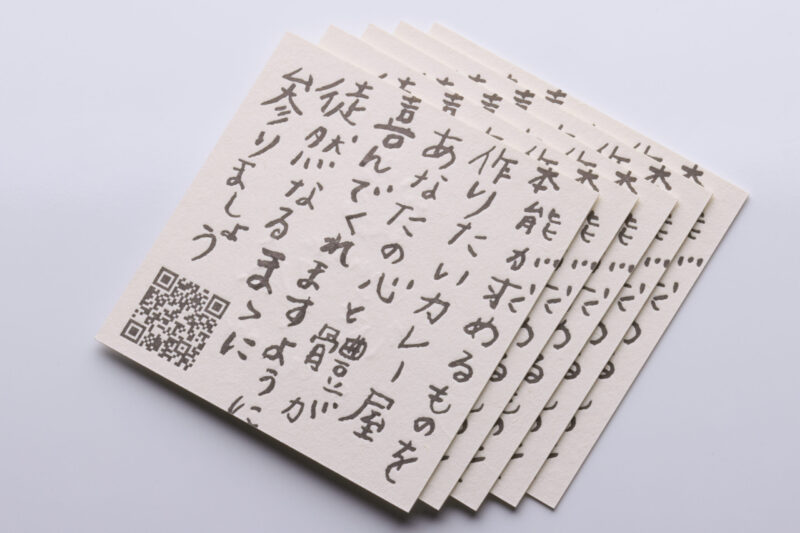 本能が求めるものを
作りたいカレー屋
あなたの心と體が
喜んでくれますように
徒然なるまゝに
参りましょう